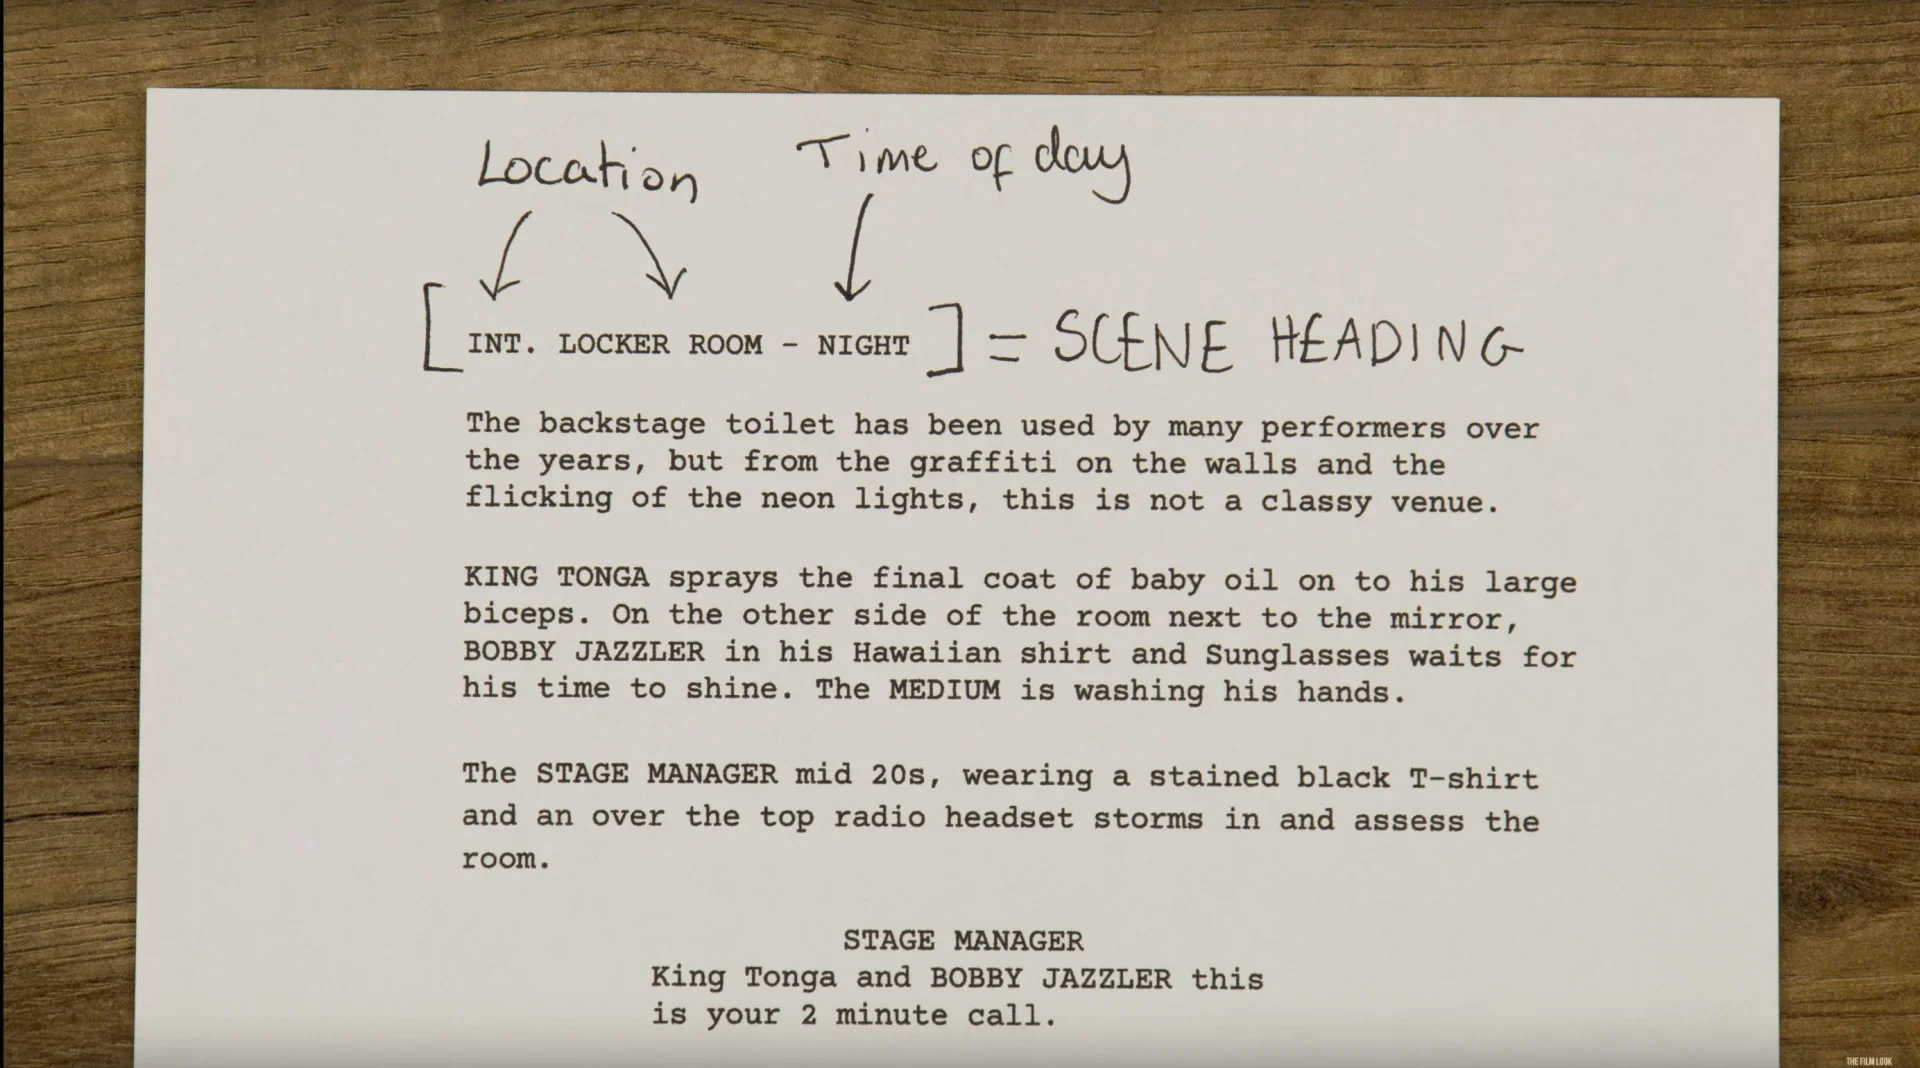 Location Time of day
[INT. LOCKER ROOM - NIGHT] = SCENE HEADING
The backstage toilet has been used by many performers over
the years, but from the graffiti on the walls and the
flicking of the neon lights, this is not a classy venue.
KING TONGA sprays the final coat of baby oil on to his large
biceps. On the other side of the room next to the mirror,
BOBBY JAZZLER in his Hawaiian shirt and Sunglasses waits for
his time to shine. The MEDIUM is washing his hands.
The STAGE MANAGER mid 20s, wearing a stained black T-shirt
and an over the top radio headset storms in and assess the
room.
STAGE MANAGER
King Tonga and BOBBY JAZZLER this
is your 2 minute call.
THE FILM LOOK